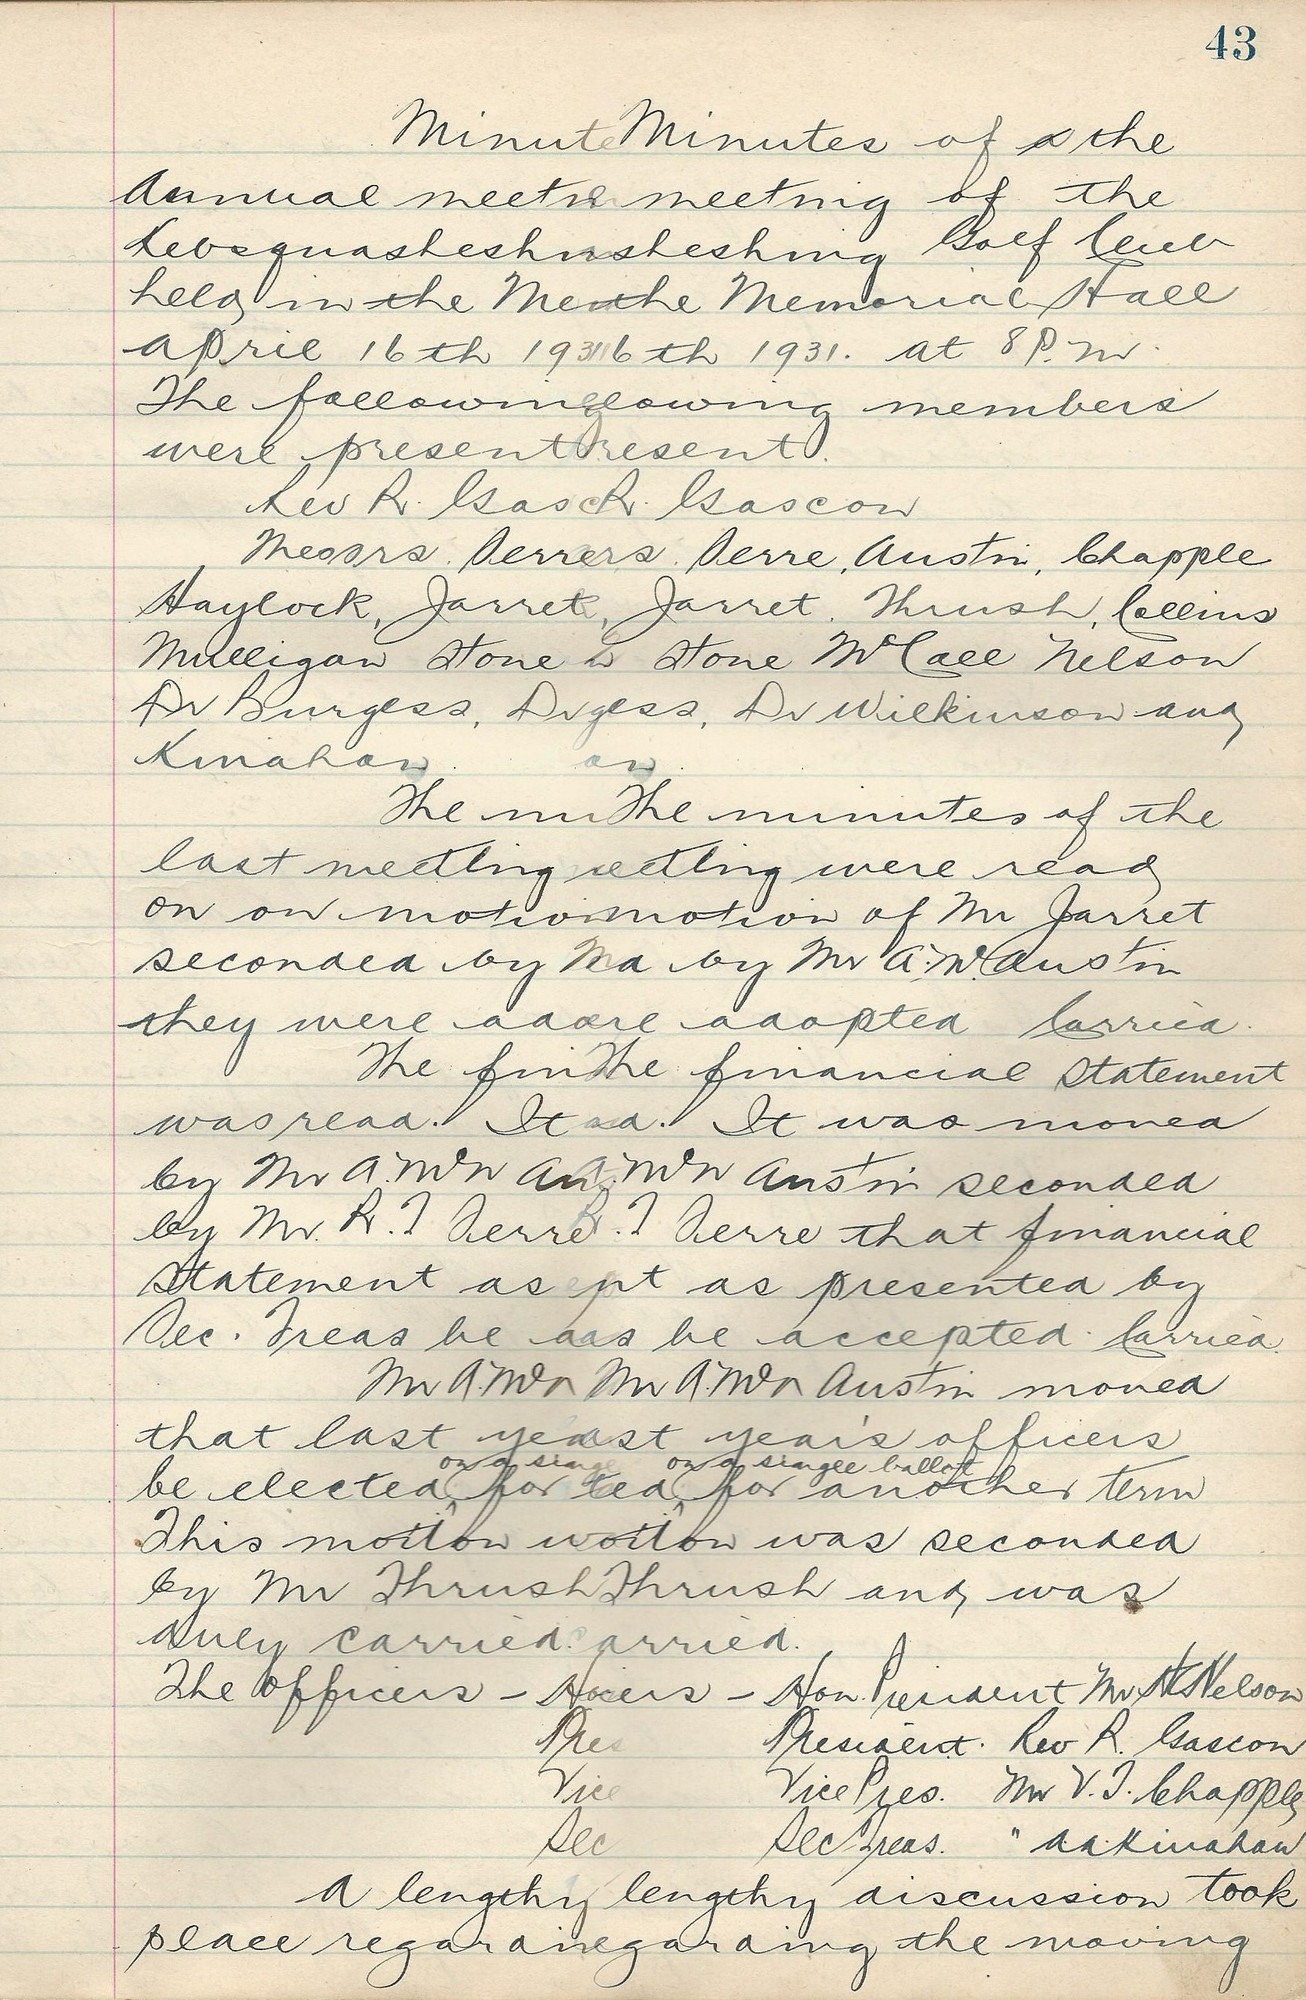 43
Minute Minutes of the
Annual meeti meeting of the
Keesquasheshin sheshing Golf Club
held in the Me the Memorial Hall
April 16th 193 16th 1931. at 8 P.m.
The following lowing members
were present resent.
Rev R. Gasc R. Gascon
Messrs. Serre rs. Serre, Austin, Chapple
Haylock, Jarret, Jarret, Thrush, Collins
Mulligan Stone Stone McCall Nelson
Dr Burgess, Dr gess, Dr Wilkinson and
Kinahan. an.
The mi The minutes of the
last meeting eeting were read
on on motion motion of Mr Jarret
seconded by M d by Mr A. McN. Austin
they were ado re adopted Carried.
The fin The financial statement
was read. It ad. It was moved
by Mr A. McN Au A. McN Austin seconded
by Mr. R. T Serre R. T Serre that financial
statement as p nt as presented by
Sec. Treas be a as be accepted. Carried.
Mr A. McN Mr A. McN Austin moved
that last yea ast year's officers
on a single on a single ballot
be elected, for ted, for another term
This motion w otion was seconded
by Mr Thrush Thrush and was
duly carried. arried.
The officers – Ho cers – Hon. President Mr N Nelson
Pres President. Rev R. Gascon
Vice Vice Pres. Mr V. T. Chapple
Sec Sec Treas. " A A Kinahan
A lengthy lengthy discussion took
place regarding egarding the moving